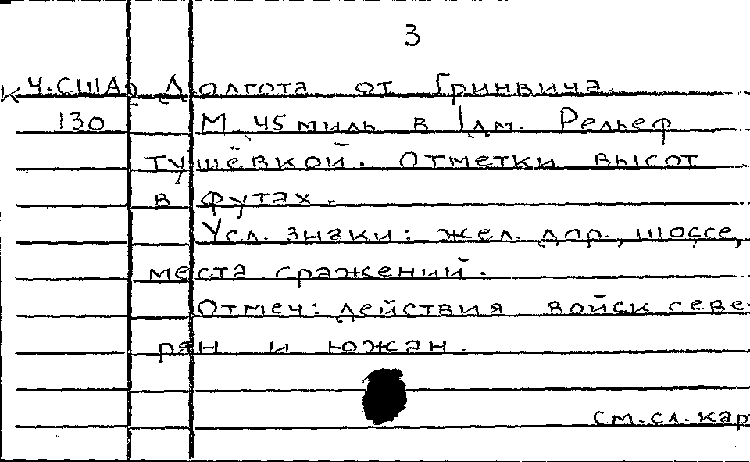 3
К Ч.США Долгота от Гринвича
130 М. 45 миль в 1дм. Рельеф
тушёвкой. Отметки высот
в футах.
Усл. знаки: жел. дор., шоссе,
места сражений.
Отмеч: действия войск севе-
рян и южан.
см. сл. кар